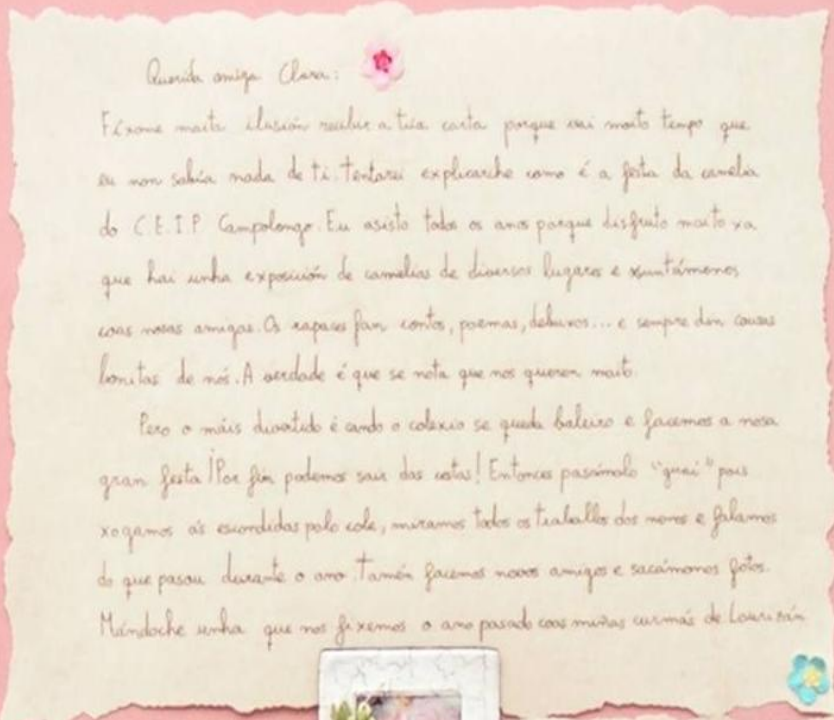 Querida amiga Clara:
Fíxome moita ilusión recibir a túa carta porque vai moito tempo que
eu non sabía nada de ti. Tentarei explicarche como é a festa da camelia
do C.E.I.P Campolongo. Eu asisto todos os anos porque disfruto moito xa
que hai unha exposición de camelias de diversos lugares e xuntámonos
coas nosas amigas. Os rapaces fan contos, poemas, debuxos... e sempre din cousas
bonitas de nós. A verdade é que se nota que nos queren moito.
Pero o máis divertido é cando o colexio se queda baleiro e facemos a nosa
gran festa ¡Por fin podemos saír das cestas! Entonces pasámolo "guai" pois
xogamos ás escondidas polo cole, miramos todos os traballos dos nenos e falamos
do que pasou durante o ano. Tamén facemos novos amigos e sacámonos fotos.
Mándoche unha que nos fixemos o ano pasado coas miñas curmás de Lourizán